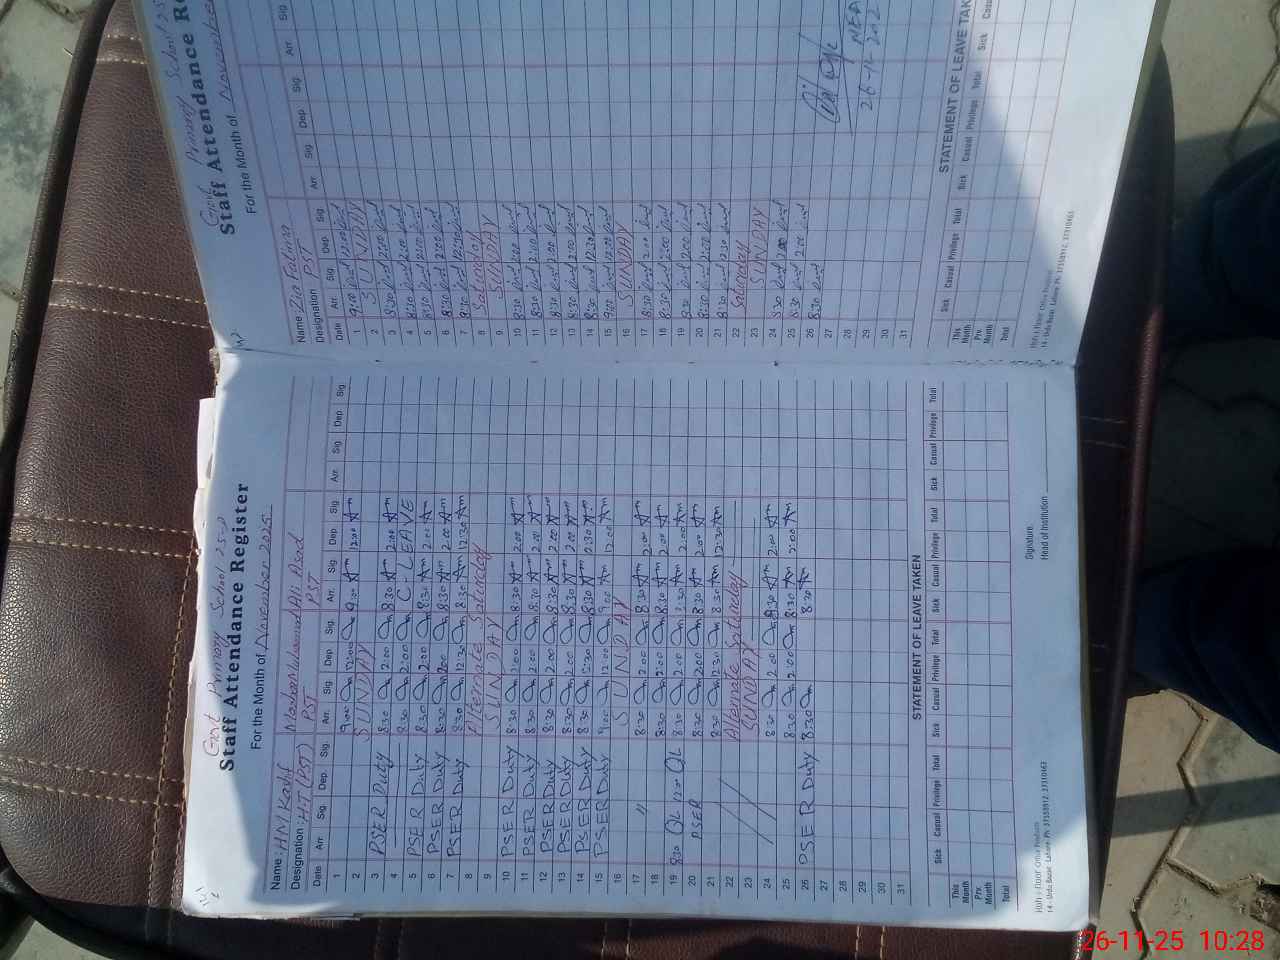 Govt Primary School
Staff Attendance Register
For the Month of November 2025
Name: HM Kashif
Designation: HT (PST) PST PST
Ali Asad
Date Arr. Sig. Dep. Sig. Arr. Sig. Dep. Sig. Arr. Sig. Dep. Sig. Arr. Sig. Dep. Sig.
1 9:00 12:00 9:00 12:00
2 SUNDAY
3 PSER Duty 8:30 2:00 8:30 2:00
4 8:30 2:00 C. LEAVE
5 PSER Duty 8:30 2:00 8:30 2:00
6 PSER Duty 8:30 2:00 8:30 2:00
7 PSER Duty 8:30 12:30 8:30 12:30
8 Alternate Saturday
9 SUNDAY
10 PSER Duty 8:30 2:00 8:30 2:00
11 PSER Duty 8:30 2:00 8:30 2:00
12 PSER Duty 8:30 2:00 8:30 2:00
13 PSER Duty 8:30 2:00 8:30 2:00
14 PSER Duty 8:30 12:30 8:30 12:30
15 PSER Duty 9:00 12:00 9:00 12:00
16 SUNDAY
17 " 8:30 2:00 8:30 2:00
18 8:30 2:00 8:30 2:00
19 8:30 8:30 2:00 8:30 2:00
20 PSER 8:30 2:00 8:30 2:00
21 8:30 12:30 8:30 12:30
22 Alternate Saturday
23 SUNDAY
24 8:30 2:00 8:30 2:00
25 8:30 2:00 8:30 2:00
26 PSER Duty 8:30 8:30
27
28
29
30
31
STATEMENT OF LEAVE TAKEN
Sick Casual Privilege Total Sick Casual Privilege Total Sick Casual Privilege Total Sick Casual Privilege Total
This Month
Prv. Month
Total
Signature
Head of Institution
Govt Primary School
Staff Attendance Re
For the Month of November
Name: Zia Fatima
Designation PST
Date Arr. Sig. Dep. Sig. Arr. Sig. Dep. Sig. Arr. Sig.
1 9:00 12:00
2 SUNDAY
3 8:30 2:00
4 8:30 2:00
5 8:30 2:00
6 8:30 2:00
7 8:30 12:30
8 Saturday
9 SUNDAY
10 8:30 2:00
11 8:30 2:00
12 8:30 2:00
13 8:30 2:00
14 8:30 12:30
15 9:00 12:00
16 SUNDAY
17 8:30 2:00
18 8:30 2:00
19 8:30 2:00
20 8:30 2:00
21 8:30 12:30
22 Saturday
23 SUNDAY
24 8:30 2:00
25 8:30 2:00
26 8:30
27
28
29
30
31
STATEMENT OF LEAVE TAK
Sick Casual Privilege Total Sick Casual Privilege Total Sick Casu
This Month
Prv. Month
Total
26-11-25 10:28